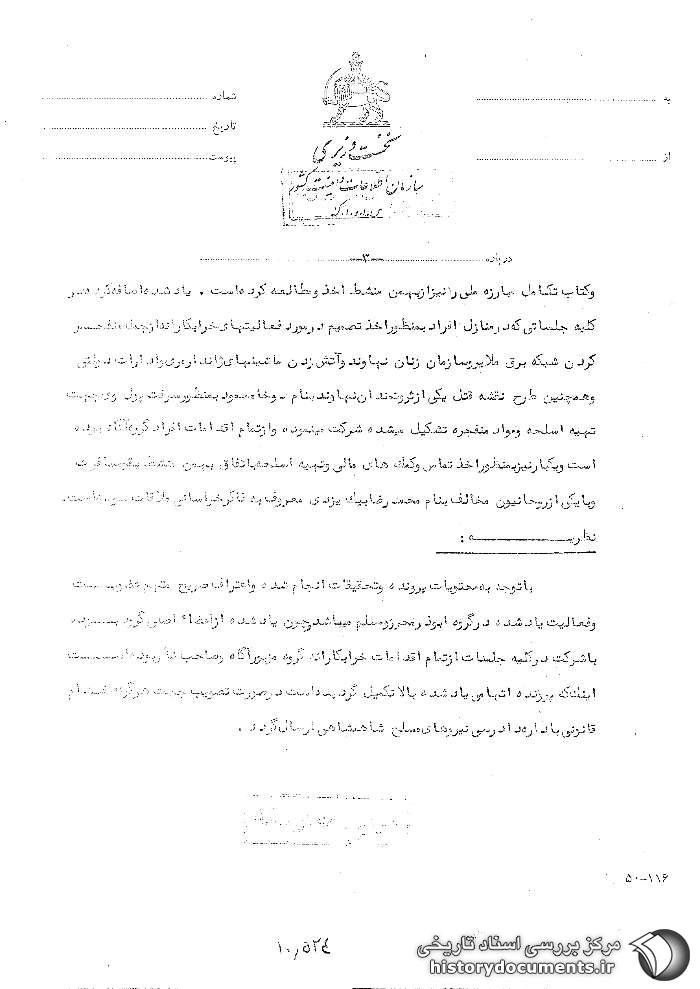 به
شماره
تاریخ
از
پیوست
نخست وزیری
سازمان اطلاعات و امنیت کشور
درباره
-۳-
وکتاب تکامل مبارزه ملی رانیزازبهمن منشط اخذ ومطالعه کرده است . یاد شده اضافه کرد در
کلیه جلساتی که در منازل افراد بمنظور اخذ تصمیم در مورد فعالیتهای خرابکارانه ازجمله منفجر
کردن شبکه برق ملایر وسازمان زنان نهاوند وآتش زدن ماشینهای ژاندارمری وادارات دولتی
وهمچنین طرح نقشه قتل یکی از ثروتمندان نهاوند بنام بمنظور سرقت پول وی جهت
تهیه اسلحه ومواد منفجره تشکیل میشده شرکت مینموده و از تمام اقدامات افراد گروه آگاه بوده
است ویکبار نیز بمنظور اخذ تماس وکمک های مالی وتهیه اسلحه باتفاق بهمن منشط بقم مسافرت
وبا یکی از روحانیون مخالف بنام محمد رضا بیک یزدی معروف به فاکر خراسانی ملاقات نموده است.
نظریـــــــه :
با توجه به محتویات پرونده وتحقیقات انجام شده واعتراف صریح متهم عضویت
وفعالیت یاد شده در گروه ابوذر محرز ومسلم میباشد چون یاد شده از اعضاء اصلی گروه بوده
با شرکت در کلیه جلسات از تمام اقدامات خرابکارانه گروه مزبور آگاه وصاحب نظر بوده است
اینک که پرونده اتهامی یاد شده بالا تکمیل گردیده است در صورت تصویب جهت هرگونه اقدام
قانونی باداره دادرسی نیروهای مسلح شاهنشاهی ارسال گردد .
۵۰-۱۱۶
۱۰٫۵۲۴
مرکز بررسی اسناد تاریخی
historydocuments.ir